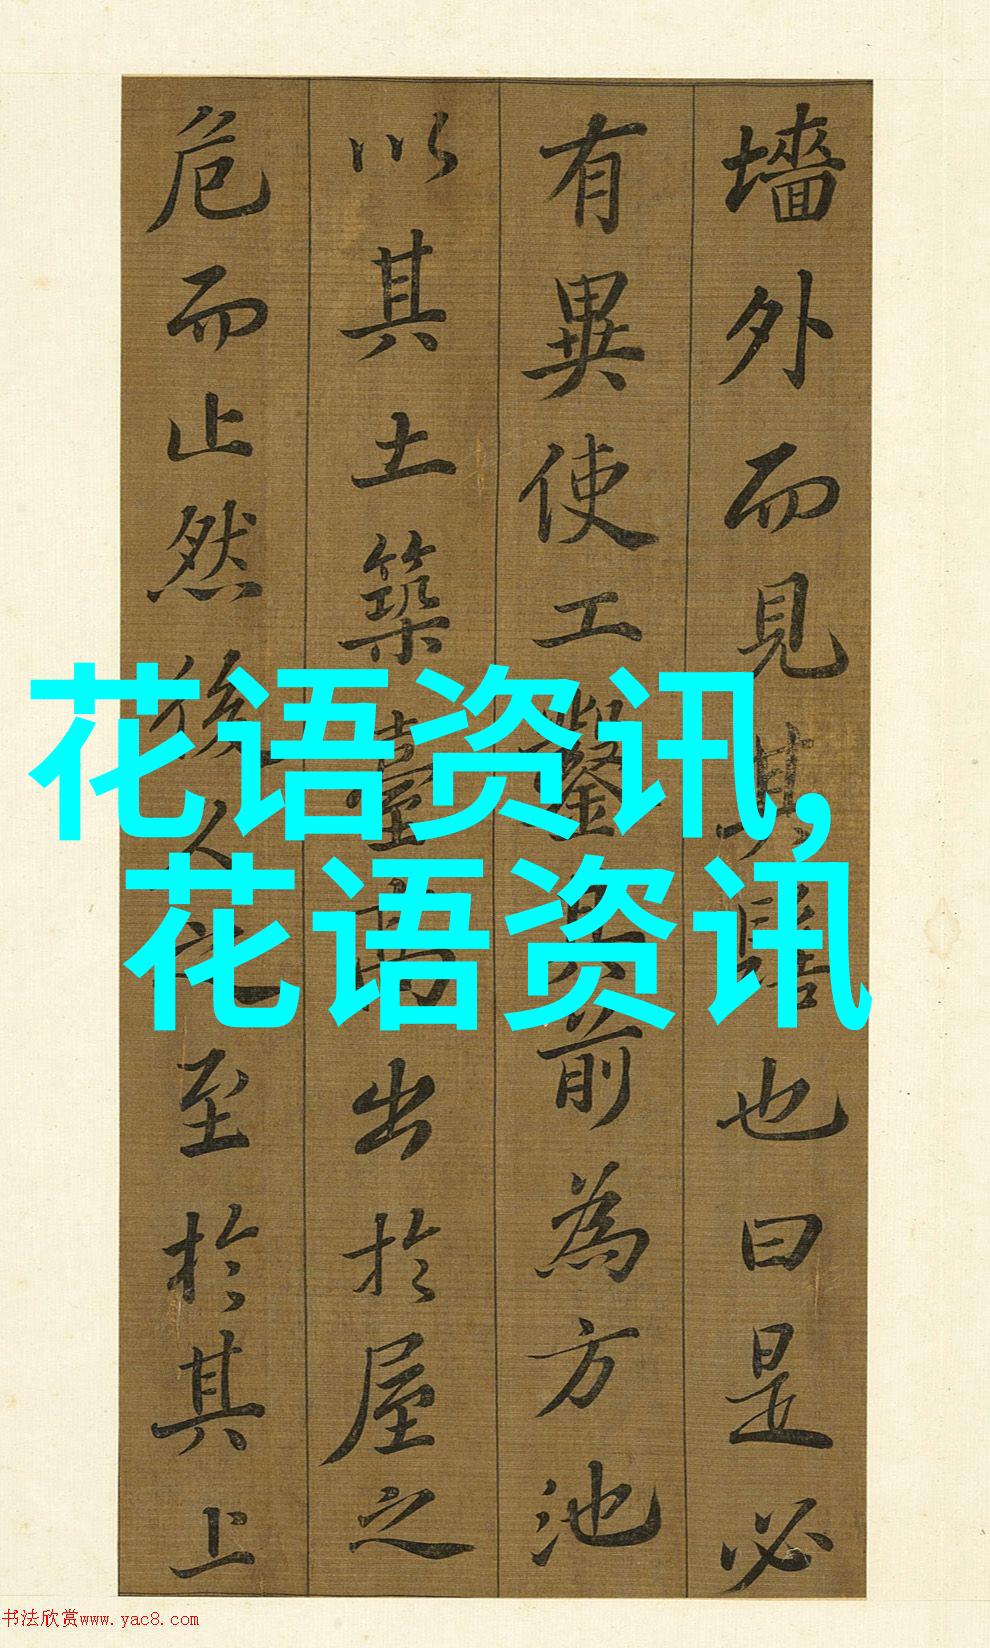 墻外而見其髻也曰是必
有異使工鑿其前為方池
以其土築臺高出於屋之
危而止然後人之至於其上
花语资讯,
花语资讯
书法欣赏www.yac8.com